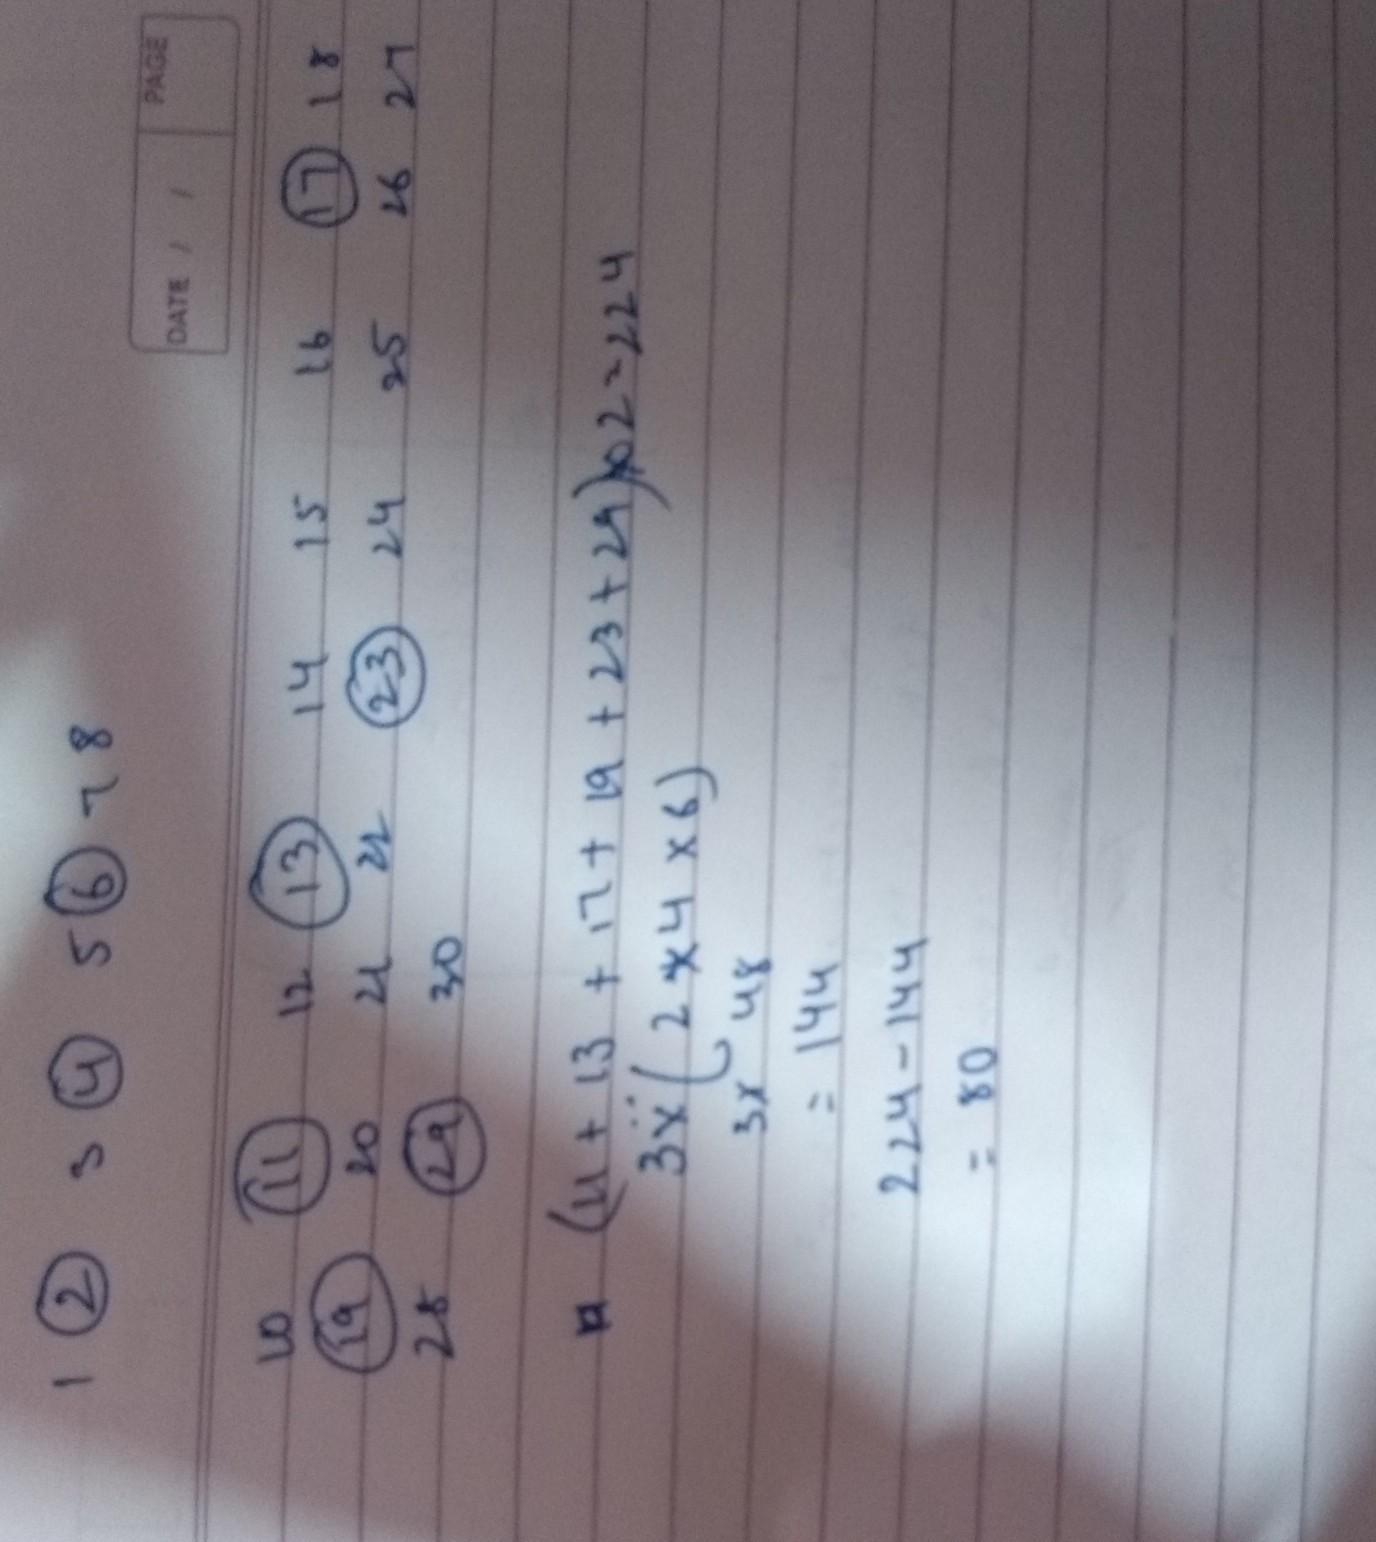 1 2 3 4 5 6 7 8
DATE / / PAGE
10 11 12 13 14 15 16 17 18
19 20 21 22 23 24 25 26 27
28 29 30
(11 + 13 + 17 + 19 + 23 + 29) 2 = 224
3x (2 x 4 x 6)
3x 48
= 144
224 - 144
= 80